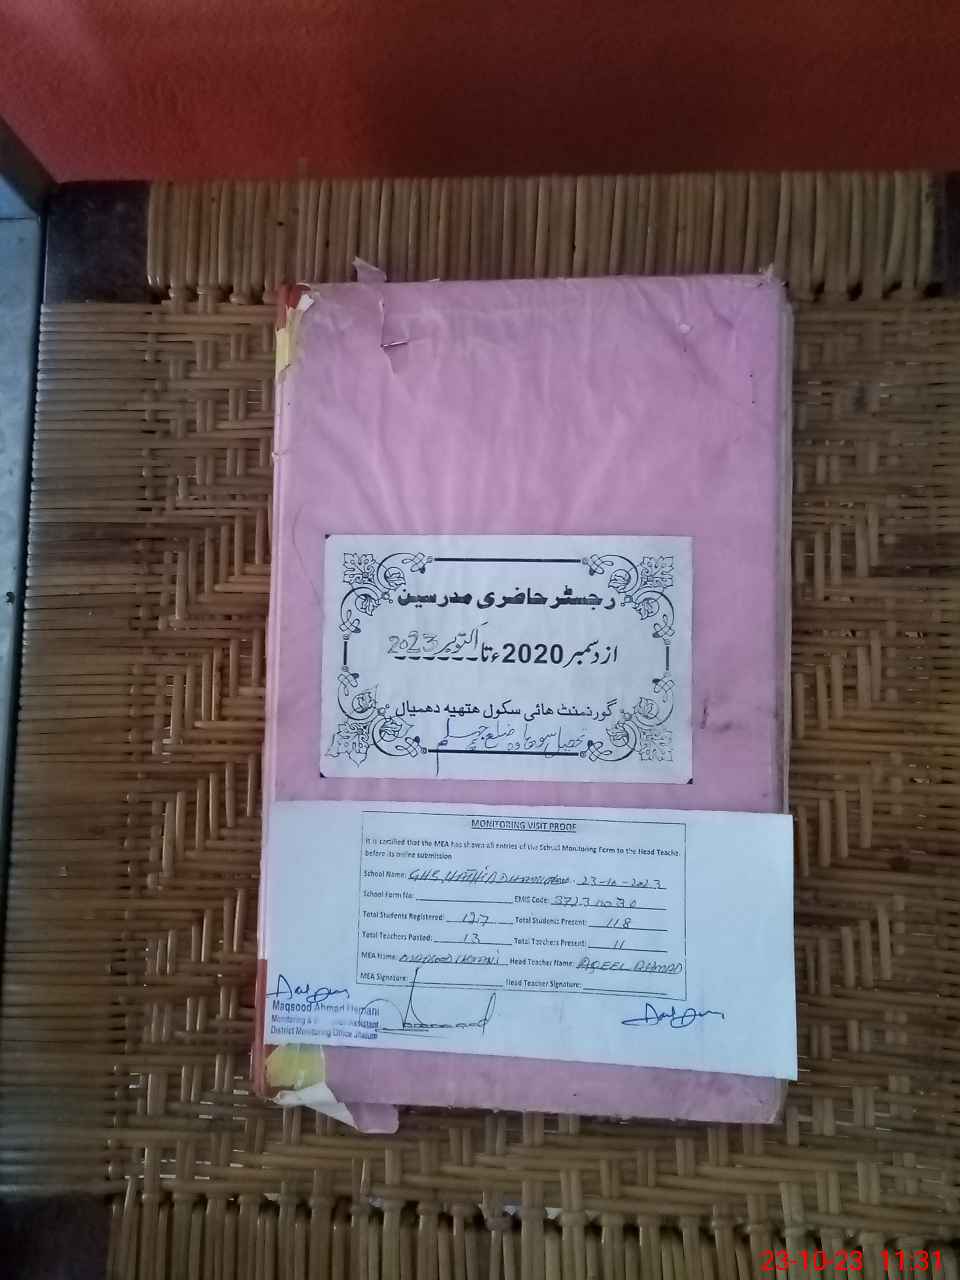 رجسٹر حاضری مدرسین
از دسمبر 2020ء تا اکتوبر 2023
گورنمنٹ ھائی سکول ھتھیہ دھمیال
تحصیل سوہاوہ ضلع جہلم
MONITORING VISIT PROOF
It is certified that the MEA has shown all entries of the School Monitoring Form to the Head Teacher
before its online submission
School Name: GHS, HATHIA DHAMYAL 23-10-2023
School Form No: EMIS Code: 37230036
Total Students Registered: 127 Total Students Present: 118
Total Teachers Posted: 13 Total Teachers Present: 11
MEA Name: MAQSOOD HEMANI Head Teacher Name: AQEEL AHMAD
MEA Signature: Head Teacher Signature:
Maqsood Ahmad Hemani
Monitoring & Assistant
District Monitoring Office Jhelum
23-10-23 11:31